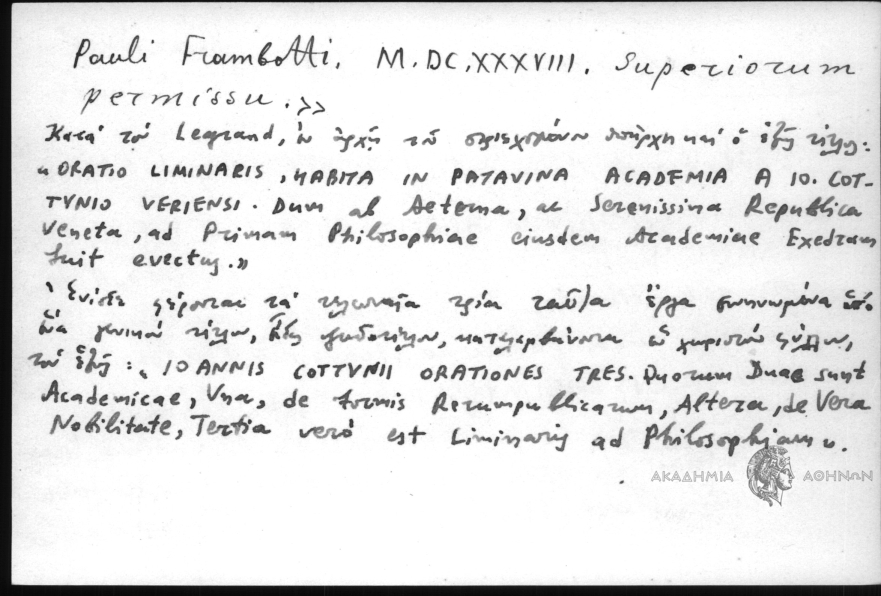 Pauli Frambotti. M.DC.XXXVIII. Superiorum
permissu.>>
Κατά τόν Legrand, ἐν ἀρχῇ τοῦ ὑπάρχει καί ὁ ἑξῆς τίτλος:
"ORATIO LIMINARIS, HABITA IN PATAVINA ACADEMIA A IO. COT-
TVNIO VERIENSI. Dum ab Aeterna, ac Serenissima Republica
Veneta, ad Primam Philosophiae eiusdem Academiae Exedram
fuit evectus."
Ἐνίοτε φέρονται τά τελευταῖα τρία ταῦτα ἔργα συνηνωμένα ὑπό
ἕνα γενικόν τίτλον, ψευδότιτλον, καταλαμβάνοντα ἕν χωριστόν φύλλον,
τόν ἑξῆς: "IOANNIS COTTVNII ORATIONES TRES. Quorum Duae sunt
Academicae, Vna, de formis Rerumpublicarum, Altera, de Vera
Nobilitate, Tertia verò est Liminaris ad Philosophiam".
ΑΚΑΔΗΜΙΑ ΑΘΗΝΩΝ